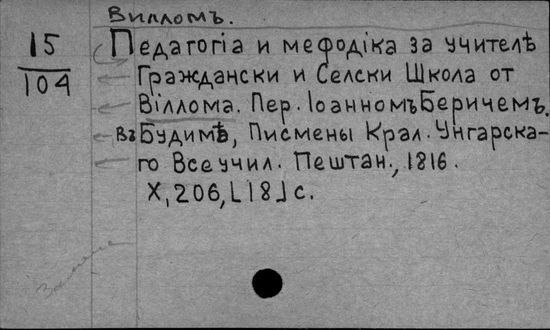 Вилломъ.
15
104
Педагогіа и меѳодіка за учителѣ
Граждански и Селски Школа от
Віллома. Пер. Іоанномъ Беричемъ.
Въ Будимѣ, Писмены Крал. Унгарска-
го Все учил. Пештан., 1816.
X, 206, [18] с.